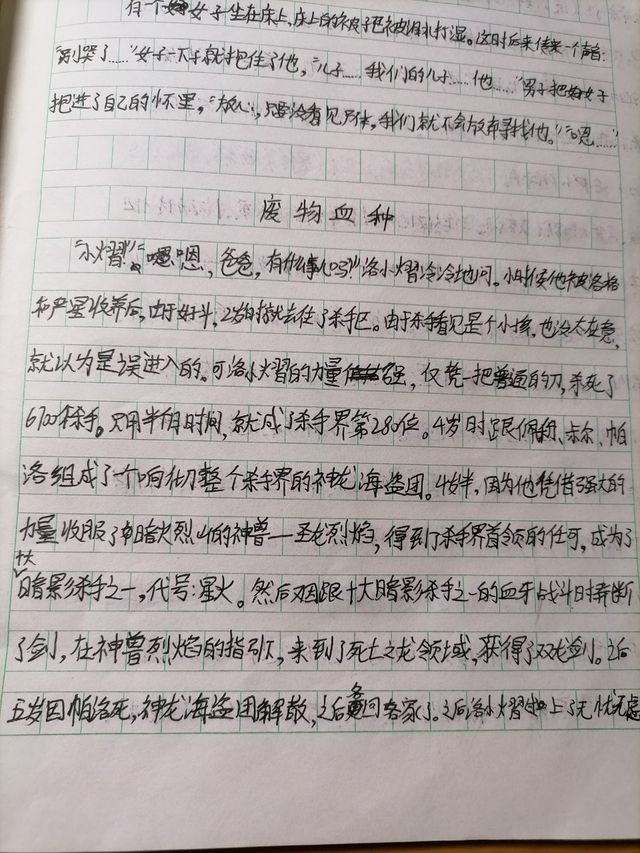 有个女子坐在床上,床上的被子已被泪水打湿。这时后来传来一个声音:
"别哭了……"女子一下子就抱住了他,"儿子……我们的儿子……他……"男子把女子
抱进了自己的怀里,"放心,只要没看见尸体,我们就不会放弃寻找他。""嗯……"
废物血种
"小熠""嗯嗯,爸爸,有什么事儿吗?"洛小熠冷冷地问。小时候他被洛格
和严星收养后,由于好斗,2岁时就去住了杀手巴。由于杀手看见是个小孩,也没太在意,
就以为是误进入的。可洛小熠的力量强,仅凭一把普通的刀,杀死了
6700杀手。只用半个月时间,就成了杀手界第280位。4岁时跟佩、卡尔、帕
洛组成了一个响彻整个杀手界的神龙海盗团。4岁半,因为他凭借强大的
力量收服了暗火烈山的神兽—圣龙烈焰,得到了杀手界首领的任可,成为了
十大暗影杀手之一,代号:星火。然后因跟十大暗影杀手之一的血牙战斗时弄断
了剑,在神兽烈焰的指引下,来到了死亡之龙领域,获得了双龙剑。之后
五岁因帕洛死,神龙海盗团解散,之后各回各家了。之后洛小熠上了无忧无虑